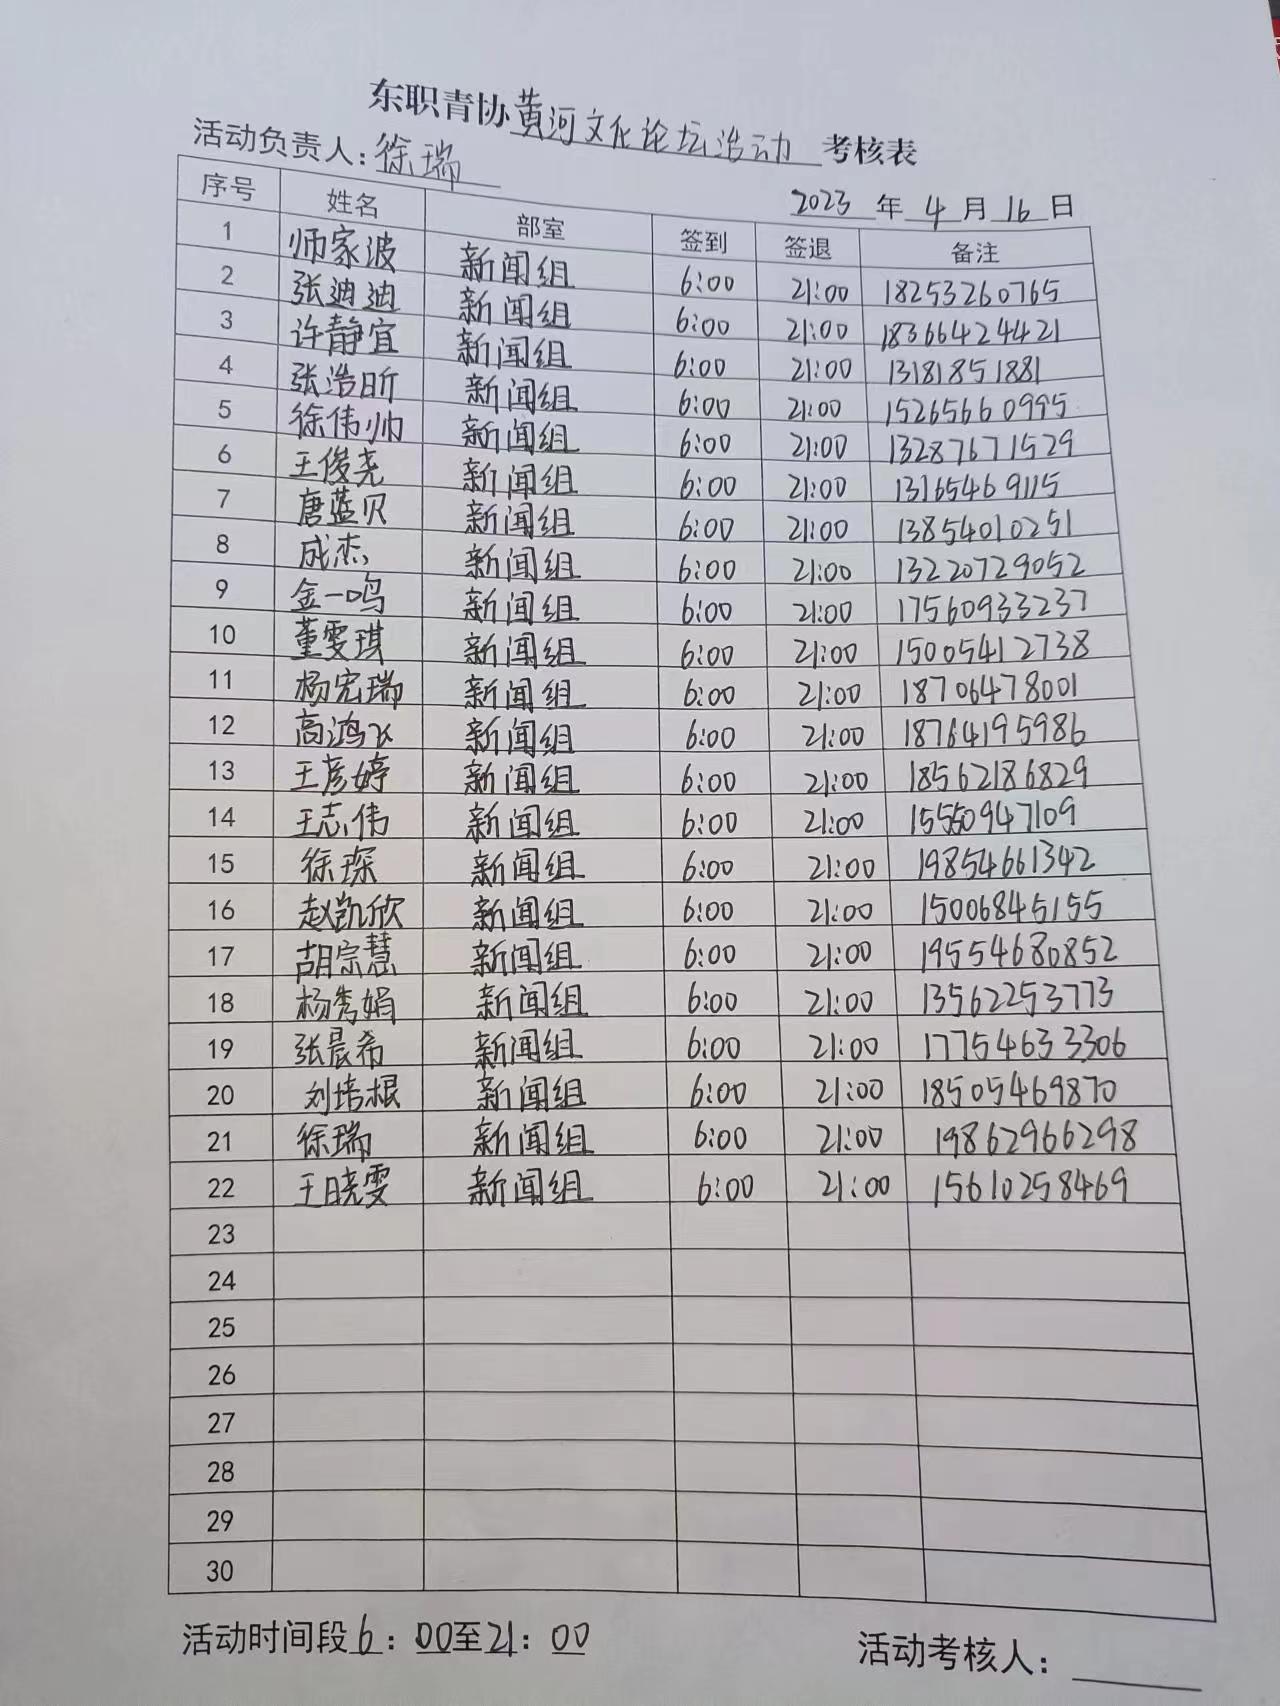 东职青协黄河文化论坛活动考核表
活动负责人:徐瑞
2023年4月16日
序号 姓名 部室 签到 签退 备注
1 师家波 新闻组 6:00 21:00 18253260765
2 张迪迪 新闻组 6:00 21:00 18366424421
3 许静宜 新闻组 6:00 21:00 13181851881
4 张浩昕 新闻组 6:00 21:00 15265660995
5 徐伟帅 新闻组 6:00 21:00 13287671529
6 王俊尧 新闻组 6:00 21:00 13165469115
7 唐蓝贝 新闻组 6:00 21:00 13854010251
8 成杰 新闻组 6:00 21:00 13220729052
9 金一鸣 新闻组 6:00 21:00 17560933237
10 董雯琪 新闻组 6:00 21:00 15005412738
11 杨宏瑞 新闻组 6:00 21:00 18706478001
12 高鸿飞 新闻组 6:00 21:00 18764195986
13 王彦婷 新闻组 6:00 21:00 18562186829
14 王志伟 新闻组 6:00 21:00 15550947109
15 徐琛 新闻组 6:00 21:00 19854661342
16 赵凯欣 新闻组 6:00 21:00 15006845155
17 胡宗慧 新闻组 6:00 21:00 19554680852
18 杨秀娟 新闻组 6:00 21:00 13562253773
19 张晨希 新闻组 6:00 21:00 17754633306
20 刘培根 新闻组 6:00 21:00 18505469870
21 徐瑞 新闻组 6:00 21:00 19862966298
22 王晓雯 新闻组 6:00 21:00 15610258469
23
24
25
26
27
28
29
30
活动时间段6:00至21:00
活动考核人: